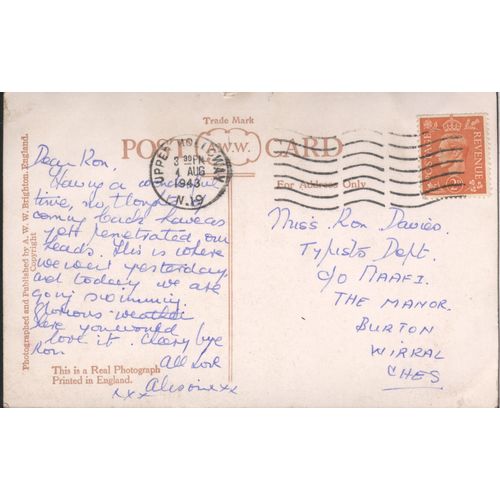 Trade Mark
POST A.W.W. CARD
UPPER HOLLOWAY
3 30 PM
4 AUG
1943
N.19
POSTAGE REVENUE
For Address Only
Dear Ron,
Having a wonderful
time, no thought of
coming back have as
yet penetrated our
heads. This is where
we went yesterday
and today we are
going swimming.
Glorious weather
here you would
love it. Cheery bye
Ron
All love
xxx
Miss Ron Davies.
Typists Dept.
c/o NAAFI.
THE MANOR.
BURTON
WIRRAL
CHES
This is a Real Photograph
Printed in England.
Photographed and Published by A. W. W. Brighton, England.
Copyright